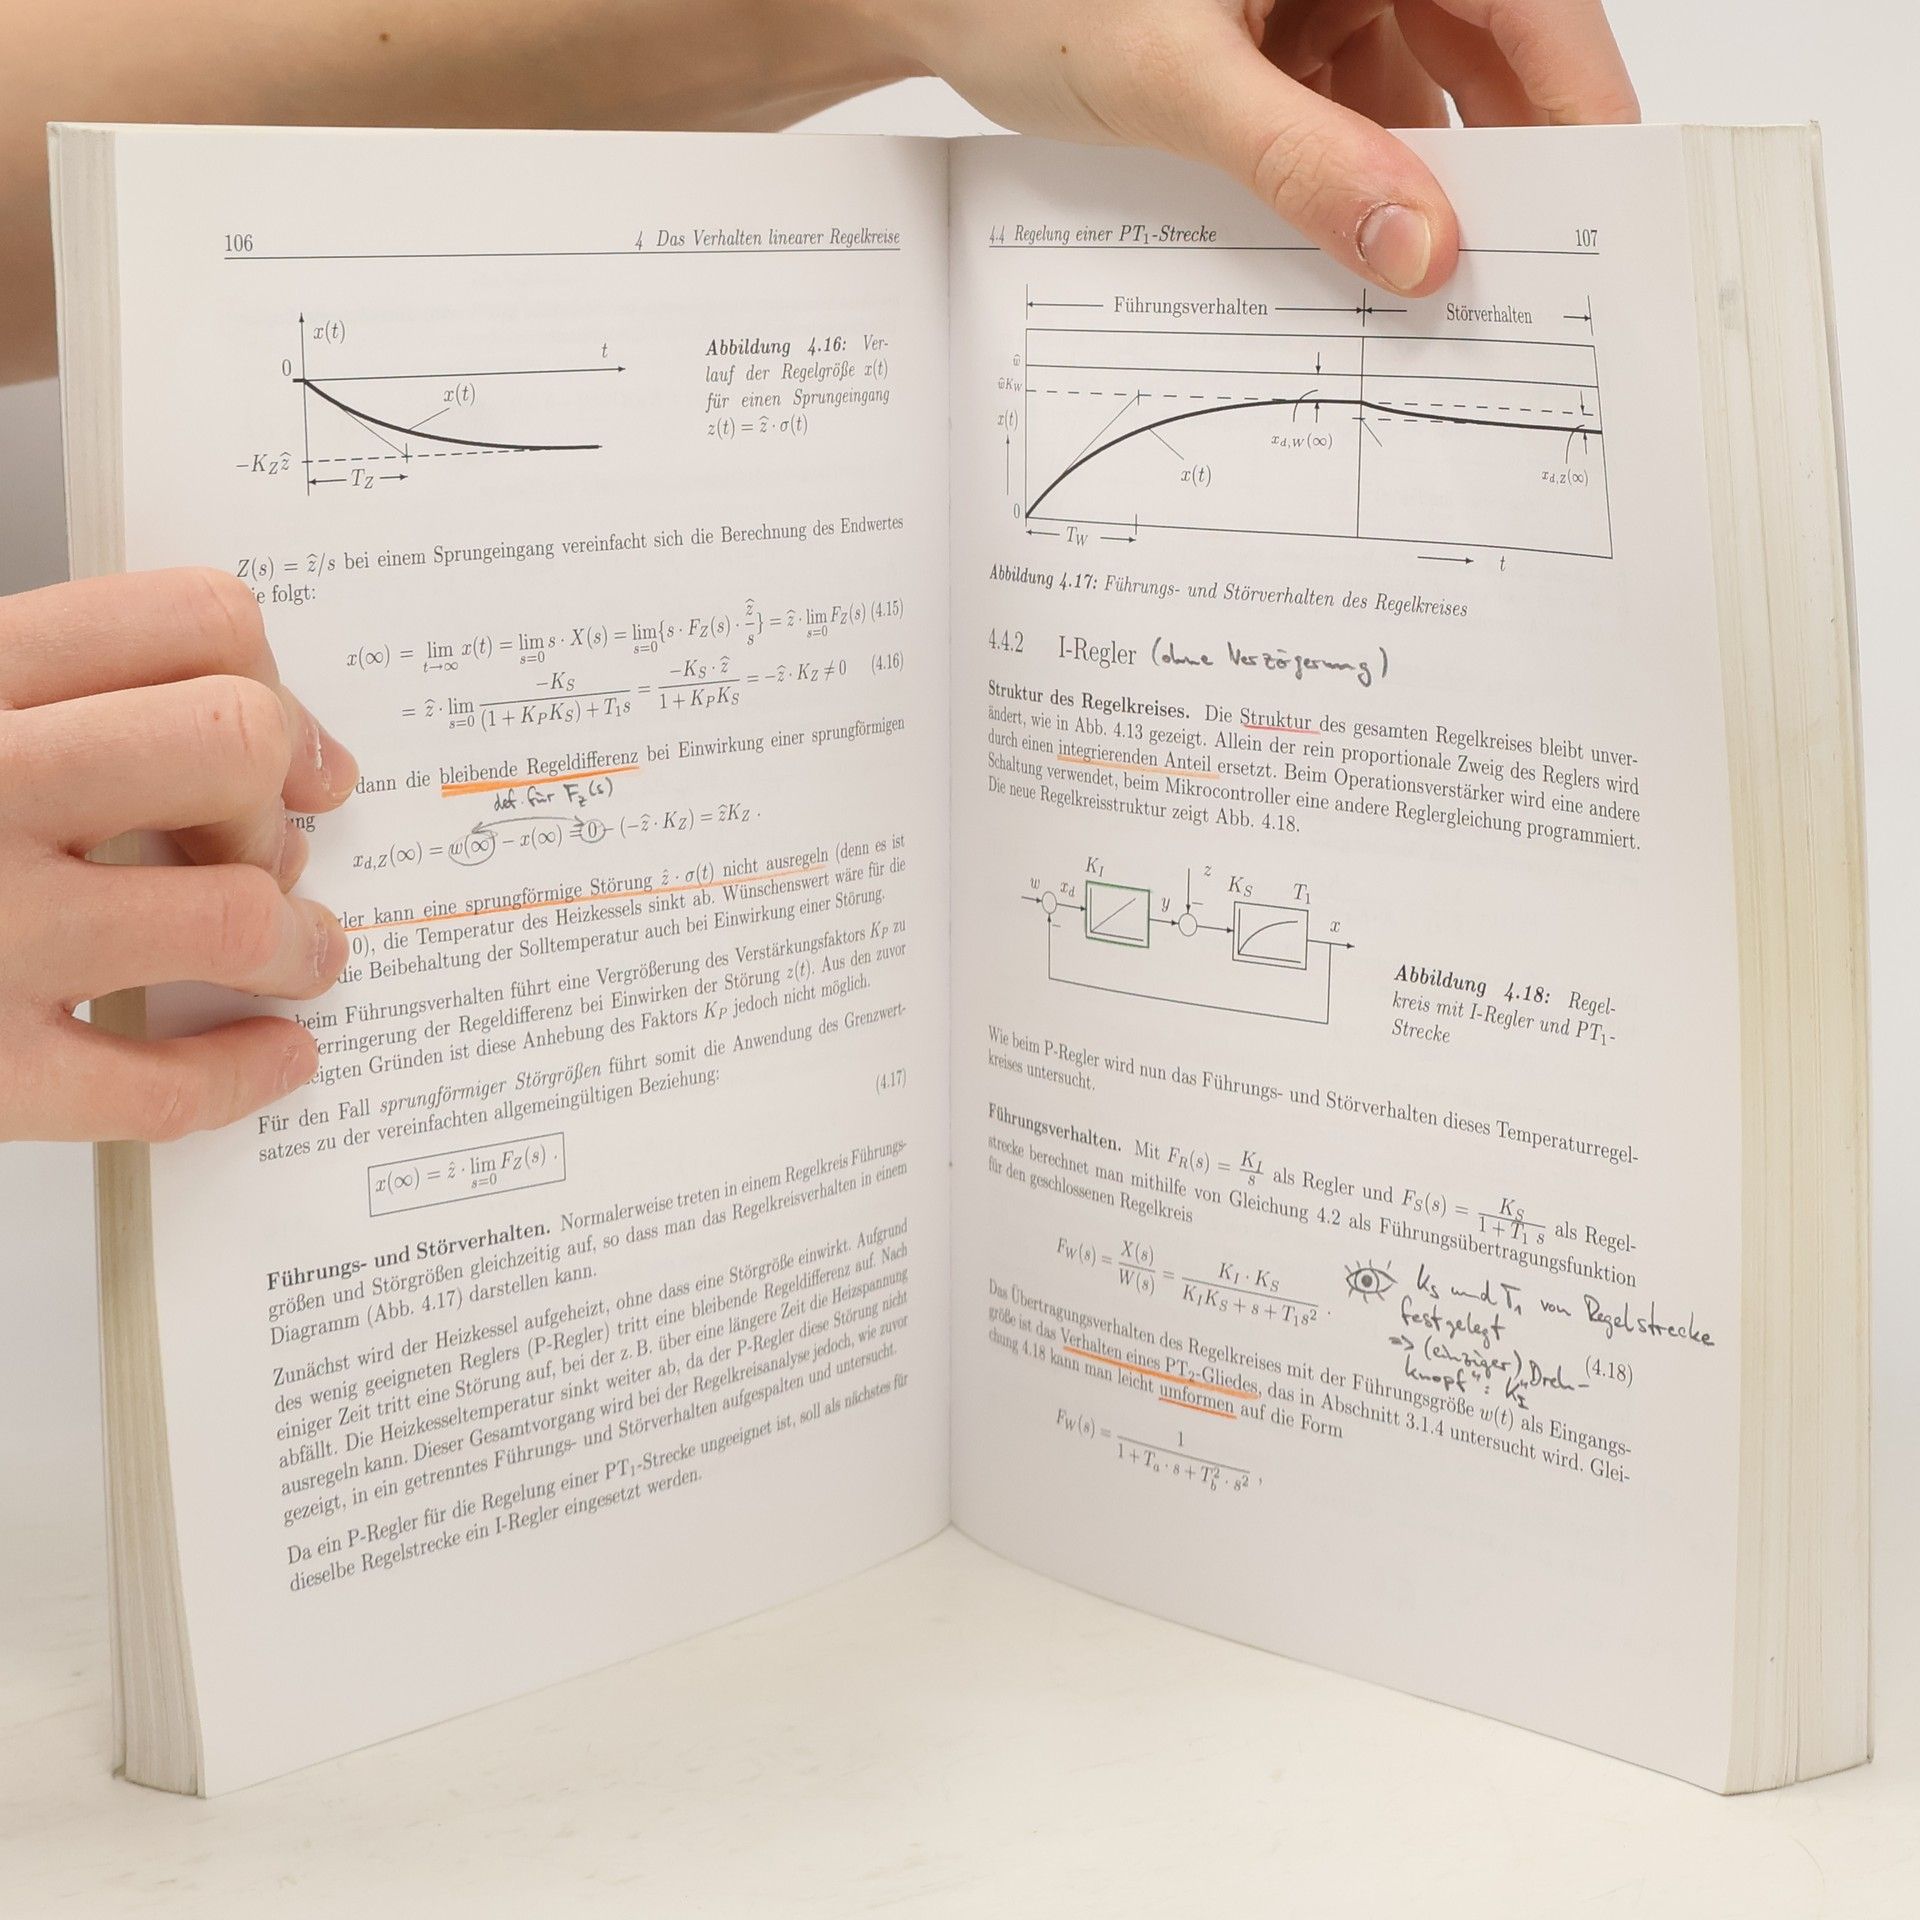 106
4 Das Verhalten linearer Regelkreise
x(t)
0
t
x(t)
−K_Z ẑ
T_Z
Abbildung 4.16: Ver-
lauf der Regelgröße x(t)
für einen Sprungeingang
z(t) = ẑ · σ(t)
Z(s) = ẑ/s bei einem Sprungeingang vereinfacht sich die Berechnung des Endwertes
folgt:
x(∞) = lim_{t→∞} x(t) = lim_{s=0} s · X(s) = lim_{s=0}{s · F_Z(s) · ẑ/s} = ẑ · lim_{s=0} F_Z(s) (4.15)
= ẑ · lim_{s=0} −K_S / ((1 + K_P K_S) + T_1 s) = −K_S · ẑ / (1 + K_P K_S) = −ẑ · K_Z ≠ 0 (4.16)
dann die bleibende Regeldifferenz bei Einwirkung einer sprungförmigen
def. für F_Z(s)
x_{d,Z}(∞) = w(∞) − x(∞) = 0 − (−ẑ · K_Z) = ẑK_Z .
kann eine sprungförmige Störung ẑ · σ(t) nicht ausregeln (denn es ist
0), die Temperatur des Heizkessels sinkt ab. Wünschenswert wäre für die
die Beibehaltung der Solltemperatur auch bei Einwirkung einer Störung.
beim Führungsverhalten führt eine Vergrößerung des Verstärkungsfaktors K_P zu
der Regeldifferenz bei Einwirken der Störung z(t). Aus den zuvor
Gründen ist diese Anhebung des Faktors K_P jedoch nicht möglich.
Für den Fall sprungförmiger Störgrößen führt somit die Anwendung des Grenzwert-
satzes zu der vereinfachten allgemeingültigen Beziehung:
(4.17)
x(∞) = ẑ · lim_{s=0} F_Z(s) .
Führungs- und Störverhalten. Normalerweise treten in einem Regelkreis Führungs-
größen und Störgrößen gleichzeitig auf, so dass man das Regelkreisverhalten in einem
Diagramm (Abb. 4.17) darstellen kann.
Zunächst wird der Heizkessel aufgeheizt, ohne dass eine Störgröße einwirkt. Aufgrund
des wenig geeigneten Reglers (P-Regler) tritt eine bleibende Regeldifferenz auf. Nach
einiger Zeit tritt eine Störung auf, bei der z. B. über eine längere Zeit die Heizspannung
abfällt. Die Heizkesseltemperatur sinkt weiter ab, da der P-Regler diese Störung nicht
ausregeln kann. Dieser Gesamtvorgang wird bei der Regelkreisanalyse jedoch, wie zuvor
gezeigt, in ein getrenntes Führungs- und Störverhalten aufgespalten und untersucht.
Da ein P-Regler für die Regelung einer PT₁-Strecke ungeeignet ist, soll als nächstes für
dieselbe Regelstrecke ein I-Regler eingesetzt werden.
4.4 Regelung einer PT₁-Strecke
107
Führungsverhalten
Störverhalten
ŵ
ŵK_W
x(t)
x_{d,W}(∞)
x(t)
x_{d,Z}(∞)
0
T_W
t
Abbildung 4.17: Führungs- und Störverhalten des Regelkreises
4.4.2 I-Regler (ohne Verzögerung)
Struktur des Regelkreises. Die Struktur des gesamten Regelkreises bleibt unver-
ändert, wie in Abb. 4.13 gezeigt. Allein der rein proportionale Zweig des Reglers wird
durch einen integrierenden Anteil ersetzt. Beim Operationsverstärker wird eine andere
Schaltung verwendet, beim Mikrocontroller eine andere Reglergleichung programmiert.
Die neue Regelkreisstruktur zeigt Abb. 4.18.
w
x_d
K_I
y
z
K_S
T_1
x
−
−
Abbildung 4.18: Regel-
kreis mit I-Regler und PT₁-
Strecke
Wie beim P-Regler wird nun das Führungs- und Störverhalten dieses Temperaturregel-
kreises untersucht.
Führungsverhalten. Mit F_R(s) = K_I/s als Regler und F_S(s) = K_S/(1 + T_1 s) als Regel-
strecke berechnet man mithilfe von Gleichung 4.2 als Führungsübertragungsfunktion
für den geschlossenen Regelkreis
F_W(s) = X(s)/W(s) = K_I · K_S / (K_I K_S + s + T_1 s²) .
K_S und T_1 von Regelstrecke
festgelegt
=> (einziger) „Dreh-
knopf": K_I
(4.18)
Das Übertragungsverhalten des Regelkreises mit der Führungsgröße w(t) als Eingangs-
größe ist das Verhalten eines PT₂-Gliedes, das in Abschnitt 3.1.4 untersucht wird. Glei-
chung 4.18 kann man leicht umformen auf die Form
F_W(s) = 1 / (1 + T_a · s + T_b² · s²) ,